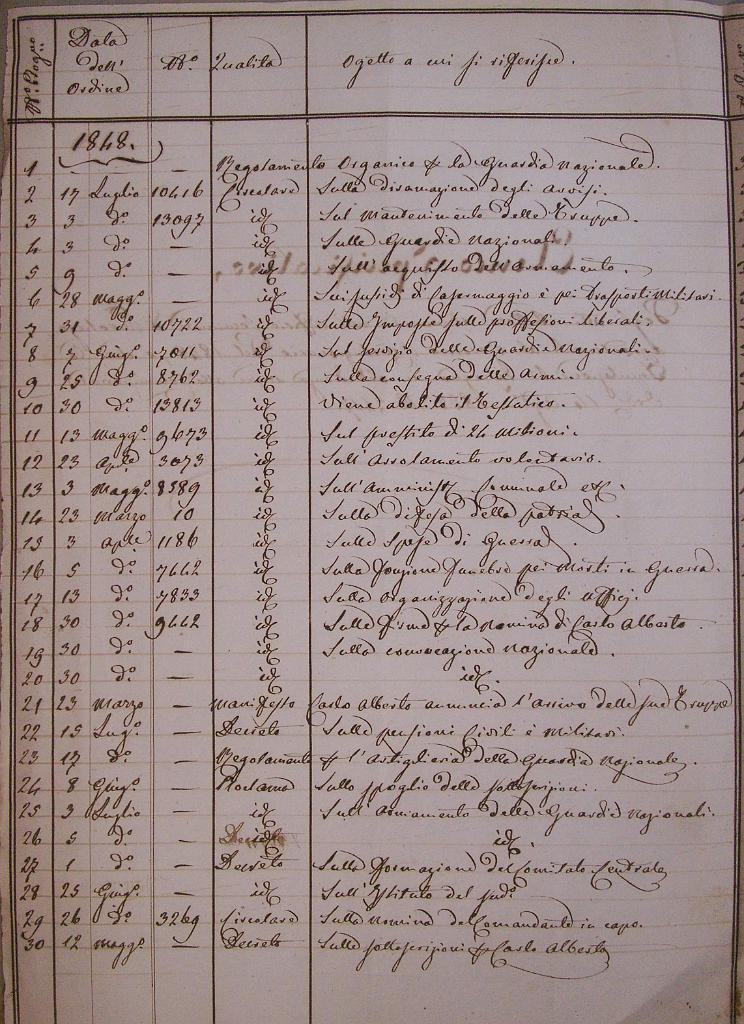 No. Progro. Data dell' Ordine No. Qualità Ogetto a cui si riferisce.
1848.
1 — — Regolamento Organico p la Guardia Nazionale.
2 17 Luglio 10416 Circolare Sulla diramazione degli Avvisi.
3 3 do. 13097 id Sul Mantenimento delle Truppe.
4 3 do. — id Sulle Guardie Nazionali.
5 9 do. — id Sull' acquisto dell'Armamento.
6 28 Maggo. — id Sui sussidi di Casermaggio e pei trasporti Militari.
7 31 do. 10722 id Sulle Imposte sulle proffessioni liberali.
8 7 Giugo. 7011 id Sul servizio delle Guardie Nazionali.
9 25 do. 8762 id Sulla consegna delle Armi.
10 30 do. 13813 id Viene abolito il Testatico.
11 13 Maggo. 9673 id Sul prestito di 24 Milioni.
12 23 Aple 3073 id Sull' Arrolamento volontario.
13 3 Maggo. 8589 id Sull' Amminist. Comunale etc.
14 23 Marzo 10 id Sulla difesa della patria.
15 3 Aple 1186 id Sulle spese di Guerra.
16 5 do. 7442 id Sulla funzione funebre pei Morti in Guerra.
17 13 do. 7833 id Sulla organizzazione degli uffici.
18 30 do. 9442 id Sulle firme p la Nomina di Carlo Alberto.
19 30 do. — id Sulla convocazione Nazionale.
20 30 do. — id id.
21 23 Marzo — Manifesto Carlo Alberto annuncia l'arrivo delle sue Truppe
22 15 Lugo. — Decreto Sulle pensioni Civili e Militari.
23 17 do. — Regolamento p l'Artiglieria della Guardia Nazionale.
24 8 Giugo. — Proclama Sullo spoglio delle sottoscrizioni.
25 3 Luglio — id Sull' Armamento delle Guardie Nazionali.
26 5 do. — id id.
27 1 do. — Decreto Sulla formazione del Comitato Centrale
28 25 Giugo. — id Sull' Istituto del sudo.
29 26 do. 3269 Circolare Sulla Nomina del Comandante in capo.
30 12 Maggo. — Decreto Sulle sottoscrizioni p Carlo Alberto